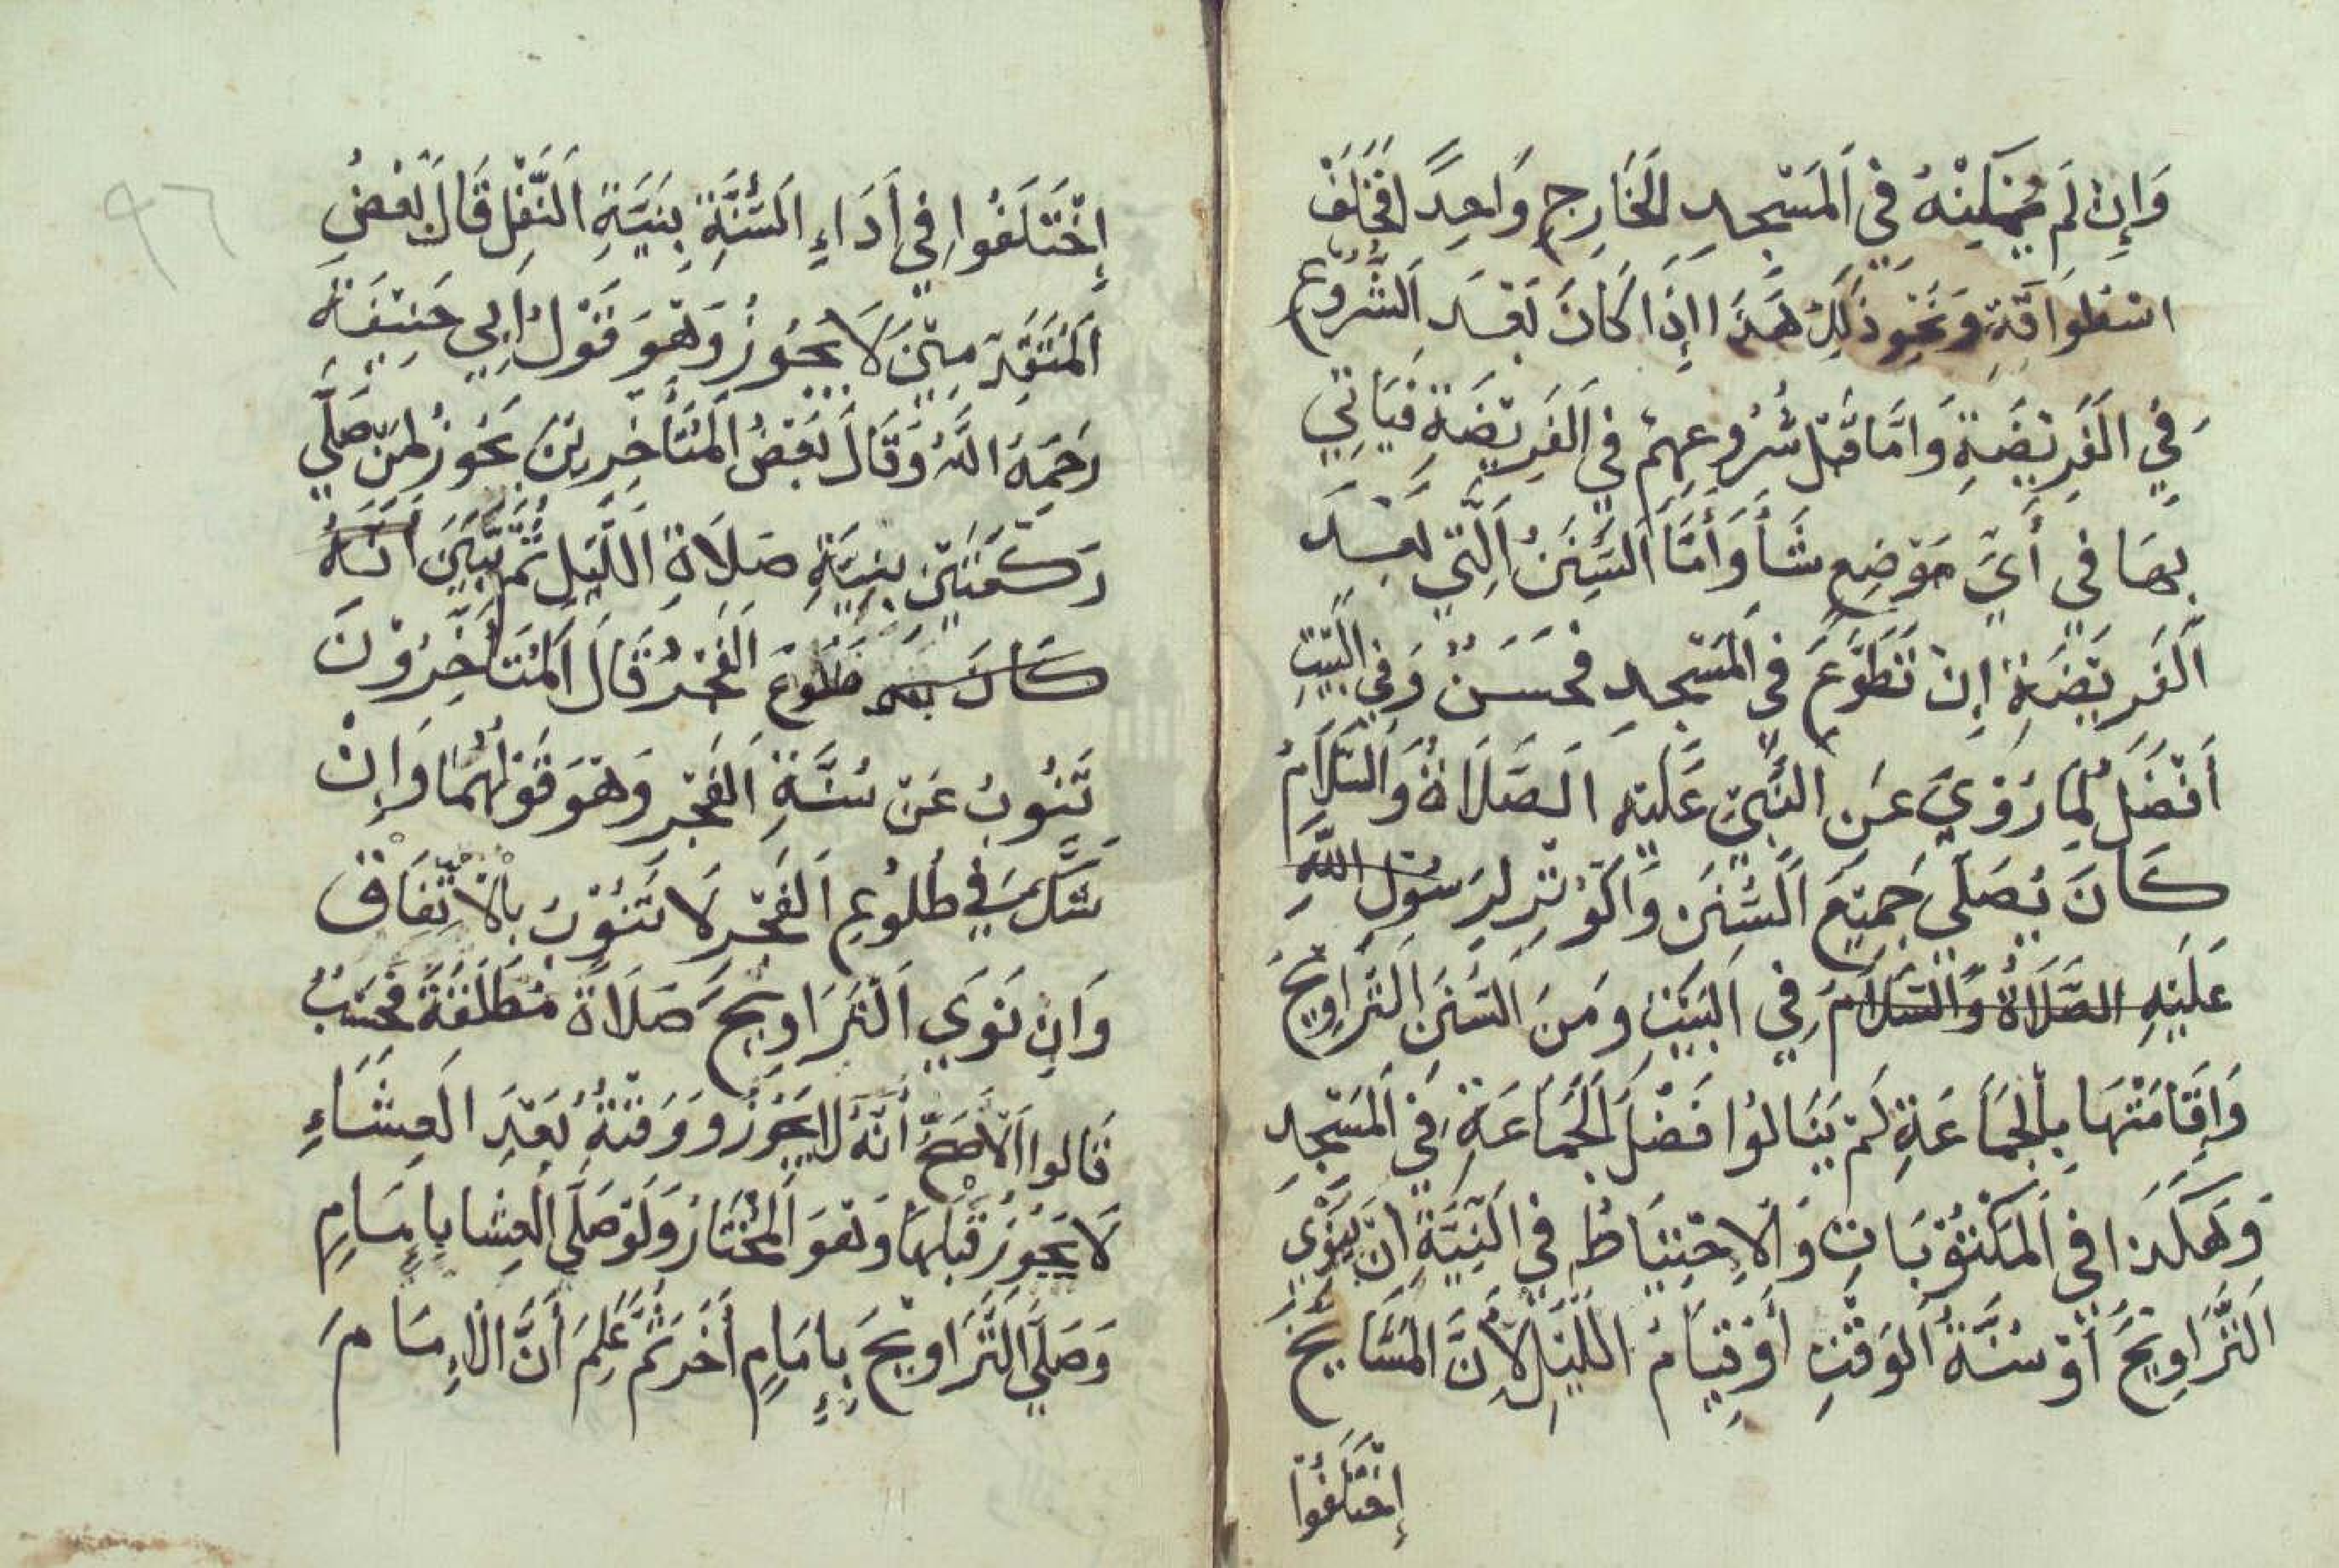 وَإِنْ لَمْ يُمْكِنْهُ فِي الْمَسْجِدِ الْخَارِجِ وَاحِدً افَخَلْفَ
اسْطِوَانَةٍ وَنَحْوِ ذَلِكَ هَذَا إِذَا كَانَ بَعْدَ الشُّرُوعِ
فِي الْفَرِيْضَةِ وَامَّا قَبْلَ شُرُوعِهِمْ فِي الْفَرِيْضَةِ فَيَاتِي
بِهَا فِي أَيِّ مَوْضِعٍ شَأَ وَأَمَّا السُّنَنُ الَّتِي بَعْدَ
الْفَرِيْضَةِ إِنْ تَطَوَّعَ فِي الْمَسْجِدِ فَحَسَنٌ وَفِي الْبَيْتِ
أَفْضَلُ لِمَا رُوِيَ عَنِ النَّبِيِّ عَلَيْهِ الصَّلَاةُ وَالسَّلَامُ
كَانَ يُصَلِّي جَمِيْعَ السُّنَنِ وَالْوِتْرِ لِرَسُوْلِ اللَّهِ
عَلَيْهِ الصَّلَاةُ وَالسَّلَامُ فِي الْبَيْتِ وَمِنَ السُّنَنِ التَّرَاوِيْحُ
وَإِقَامَتُهَا بِالْجَمَاعَةِ لَمْ يَنَالُوا فَضْلَ الْجَمَاعَةِ فِي الْمَسْجِدِ
وَهَكَذَا فِي الْمَكْتُوْبَاتِ وَالْاِحْتِيَاطُ فِي النِّيَّةِ أَنْ يَنْوِيَ
التَّرَاوِيْحَ أَوْ سُنَّةَ الْوَقْتِ أَوْ قِيَامَ اللَّيْلِ لِأَنَّ الْمَشَايِخَ
إِخْتَلَفُوْا
٩٦
إِخْتَلَفُوا فِي أَدَاءِ السُّنَّةِ بِنِيَّةِ النَّفْلِ قَالَ بَعْضُ
الْمُتَقَدِّمِيْنَ لَا يَجُوْزُ وَهُوَ قَوْلُ ابِي حَنِيْفَةَ
رَحِمَهُ اللَّهُ وَقَالَ بَعْضُ الْمُتَأَخِّرِيْنَ يَجُوزُ لِمَنْ صَلَّي
رَكْعَتَيْنِ بِنِيَّةِ صَلَاةِ اللَّيْلِ ثُمَّ تَبَيَّنَ أَنَّهُ
كَانَ بعد طُلُوعَ الْفَجْرُ قَالَ الْمُتَأَخِّرُوْنَ
تَنُوْبُ عَنْ سُنَّةِ الْفَجْرِ وَهُوَ قَوْلُهُمَا وَإِنْ
شَكَّ فِي طُلُوْعِ الْفَجْرِ لَا تَنُوْبُ بِالْاِتِّفَاقِ
وَانْ نَوَي التَّرَاوِيْحَ صَلَاةً مُطْلَقَةً فَحَسْبُ
قَالُوا الْأَصَحُّ أَنَّهُ لَا يَجُوْزُ وَوَقْتُهُ بَعْدَ الْعِشَاءِ
لَا يَجُوْزُ قَبْلَهَا وَهُوَ الْمُخْتَارُ وَلَوْ صَلَّي الْعِشَا بِإِمَامٍ
وَصَلَّي التَّرَاوِيْحَ بِإِمَامٍ أَخَرَ ثُمَّ عَلِمَ أَنَّ الْإِمَامَ